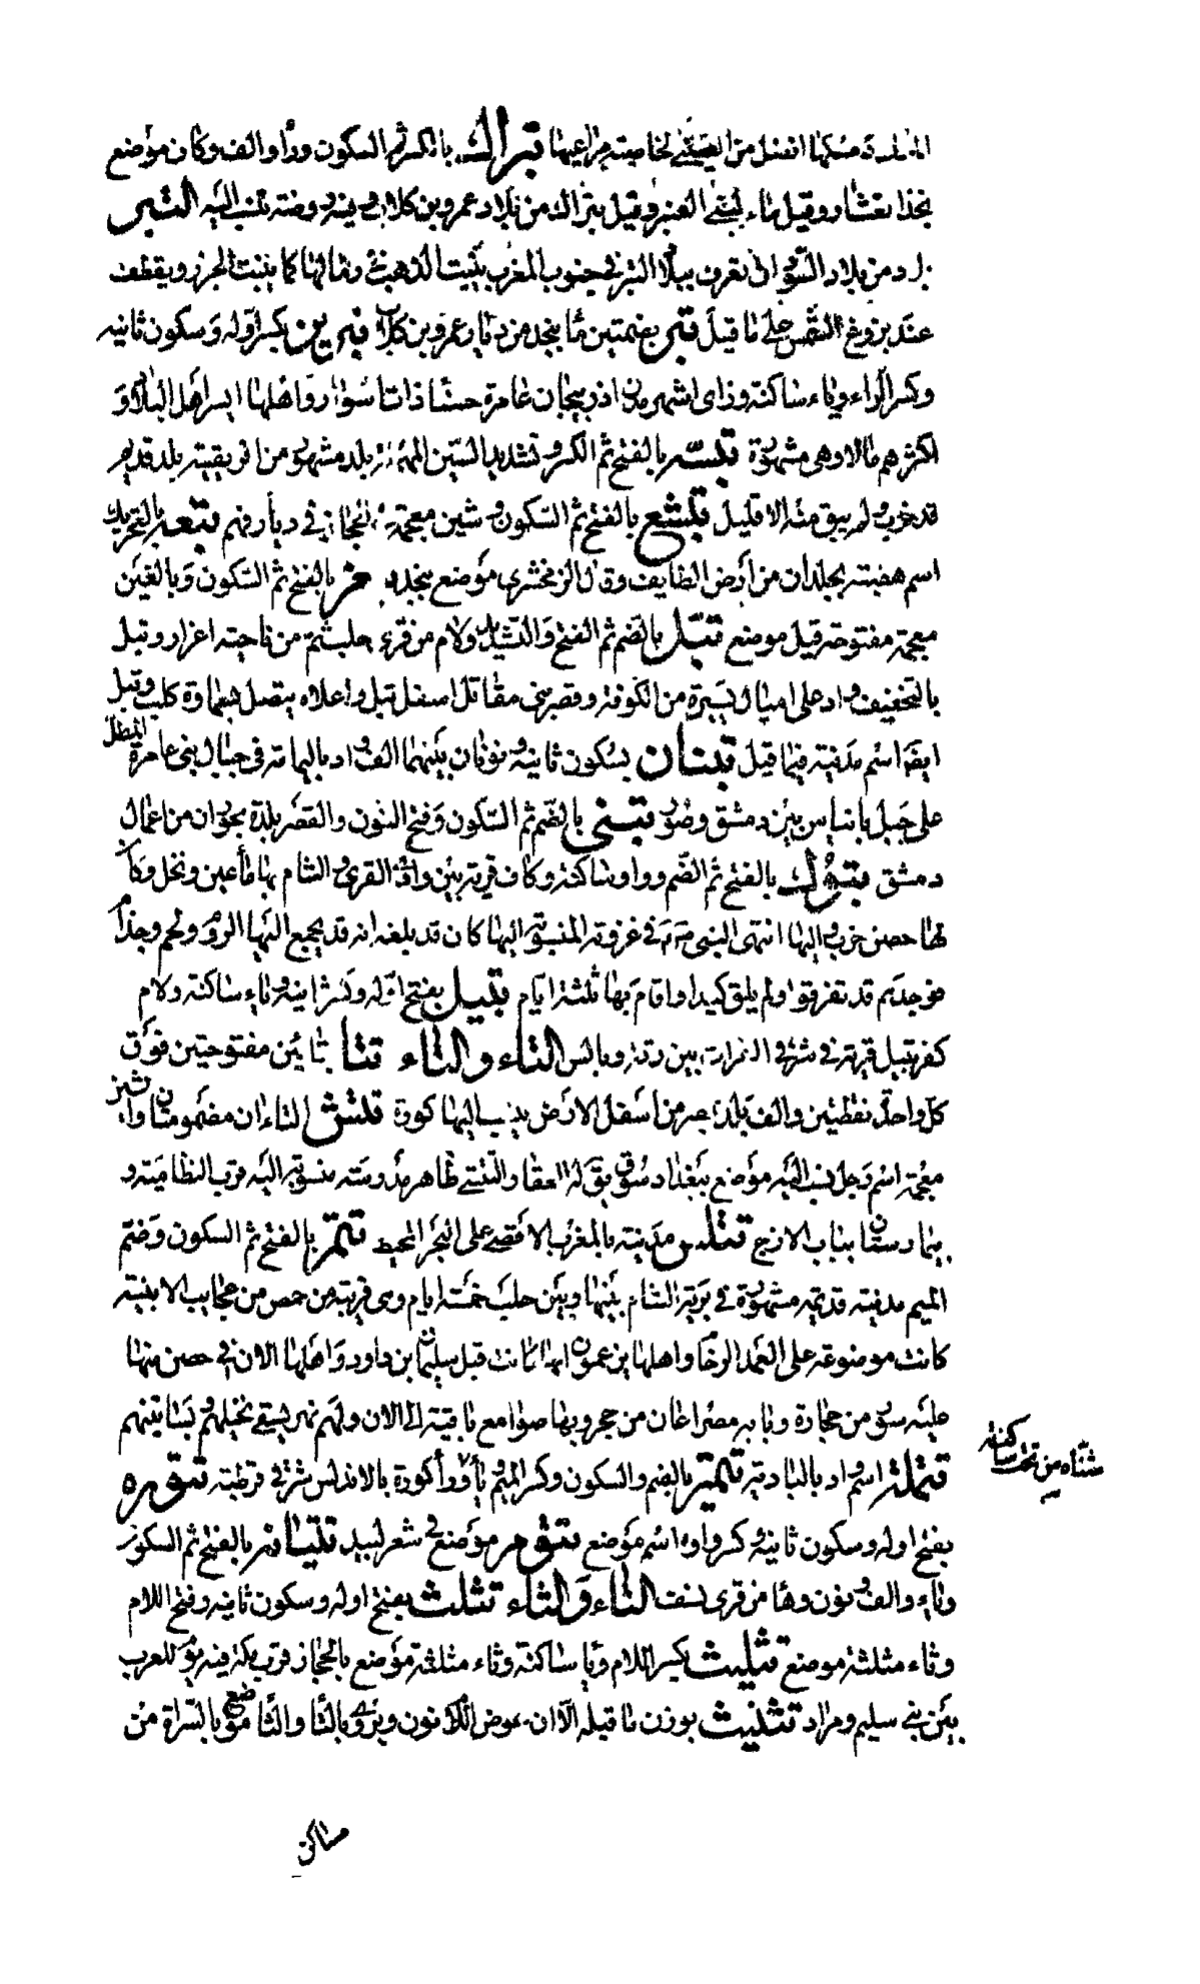 مسكها افضل من الصيني لخاصية مراعيها تبراك بالكسر ثم السكون وراء والف وكاف موضع
بحذا تعشار وقيل ماء لبني العنبر وقيل تبراك من بلاد عمرو بن كلاب فيه روضة تنسب اليه التبر
بلاد من بلاد السودان تعرف ببلاد التبر في جنوب المغرب ينبت الذهب في رمالها كما ينبت الجزر ويقطف
عند بزوغ الشمس على ما قيل تبر بضمتين ماء بنجد من ديار عمرو بن كلاب تبريز بكسر اوله وسكون ثانيه
وكسر الراء وياء ساكنة وزاى اشهر مدن اذربيجان عامرة حسنا ذات اسوار واهلها ايسر اهل البلاد و
اكثرهم مالا وهى مشهورة تبسه بالفتح ثم الكسر وتشديد السين المهملة بلد مشهور من افريقية بلد قديم
قد خرب ولم يبق منه الا قليل تبشع بالفتح ثم السكون وشين معجمة بالحجاز في ديار فهم تبعه بالتحريك
اسم هضبة بجلدان من ارض الطايف وقال الزمخشرى موضع بنجد بالفتح ثم السكون وبالغين
معجمة مفتوحة قيل موضع تبل بالضم ثم الفتح والتشديد ولام من قرى حلب ثم من ناحية اعزاز وتبل
بالتخفيف واد على اميال يسيرة من الكوفة وقصر بني مقاتل اسفل تبل واعلاه يتصل بسماوة كلب وتبل
ايضا اسم مدينة فيما قيل تبنان بسكون ثانيه ونونان بينهما الف واد باليمامة في جبال بنى عامر المطل
على جبل بانياس بين دمشق وصور تبنى بالضم ثم السكون وفتح النون والقصر بلدة بحوران من اعمال
دمشق تبوك بالفتح ثم الضم وواو ساكنة وكاف قرية بين وادى القرى والشام بها ماء عين ونخل وكان
لها حصن خرب واليها انتهى النبى في غزوته المنسوبة اليها كان قد بلغه انه قد تجمع اليها الروم ولخم وجذام
فوجدهم قد تفرقوا ولم يلق كيدا واقام بها ثلثة ايام تبيل بفتح اوله وكسر ثانيه وياء ساكنة ولام
كفر تبيل قرية في شرقى الفرات بين رقة وبالس التاء والتاء تتا بتائين مفتوحتين فوق
كل واحدة نقطتين والف بليدة بمصر من اسفل الارض ينسب اليها كورة تتش التاءان مضمومتان والشين
معجمة اسم رجل نسب اليه موضع ببغداد سوق قرب له العقار التتشى ظاهر مدرسة منسوبة اليه قرب النظامية و
بيمارستان بباب الازج تتلس مدينة بالمغرب الاقصى على البحر المحيط تتمر بالفتح ثم السكون وضم
الميم مدينة قديمة مشهورة في برية الشام بينها وبين حلب خمسة ايام وهى قريبة من حمص من عجايب الابنية
كانت موضوعة على العمد الرخام واهلها يزعمون انها كانت قبل سليمان بن داود واهلها الان في حصن منها
عليه سور من حجارة وبابه مصراعان من حجر وبها صوامع باقية الى الان ولهم نهر يسقى نخيلهم وبساتينهم
تتملة اسم واد بالبادية تتمير بالضم والسكون وكسر الميم وياء وراء كورة بالاندلس شرقى قرطبة تتوره
مثناة من تحت ساكنة
بفتح اوله وسكون ثانيه وكسر واوه اسم موضع تتوم موضع في شعر لبيد تتيانه بالفتح ثم السكون
وياء والف ونون وهاء من قرى نسف التاء والثاء تثلث بفتح اوله وسكون ثانيه وفتح اللام
وثاء مثلثة موضع تثليث بكسر اللام وياء ساكنة وثاء مثلثة موضع بالحجاز قرب مكة فيه يوم للعرب
بين بني سليم ومراد تثنيث بوزن ما قبله الا ان عوض اللام نون ويروى بالتاء والثاء موضع بالسراة من
مساكن